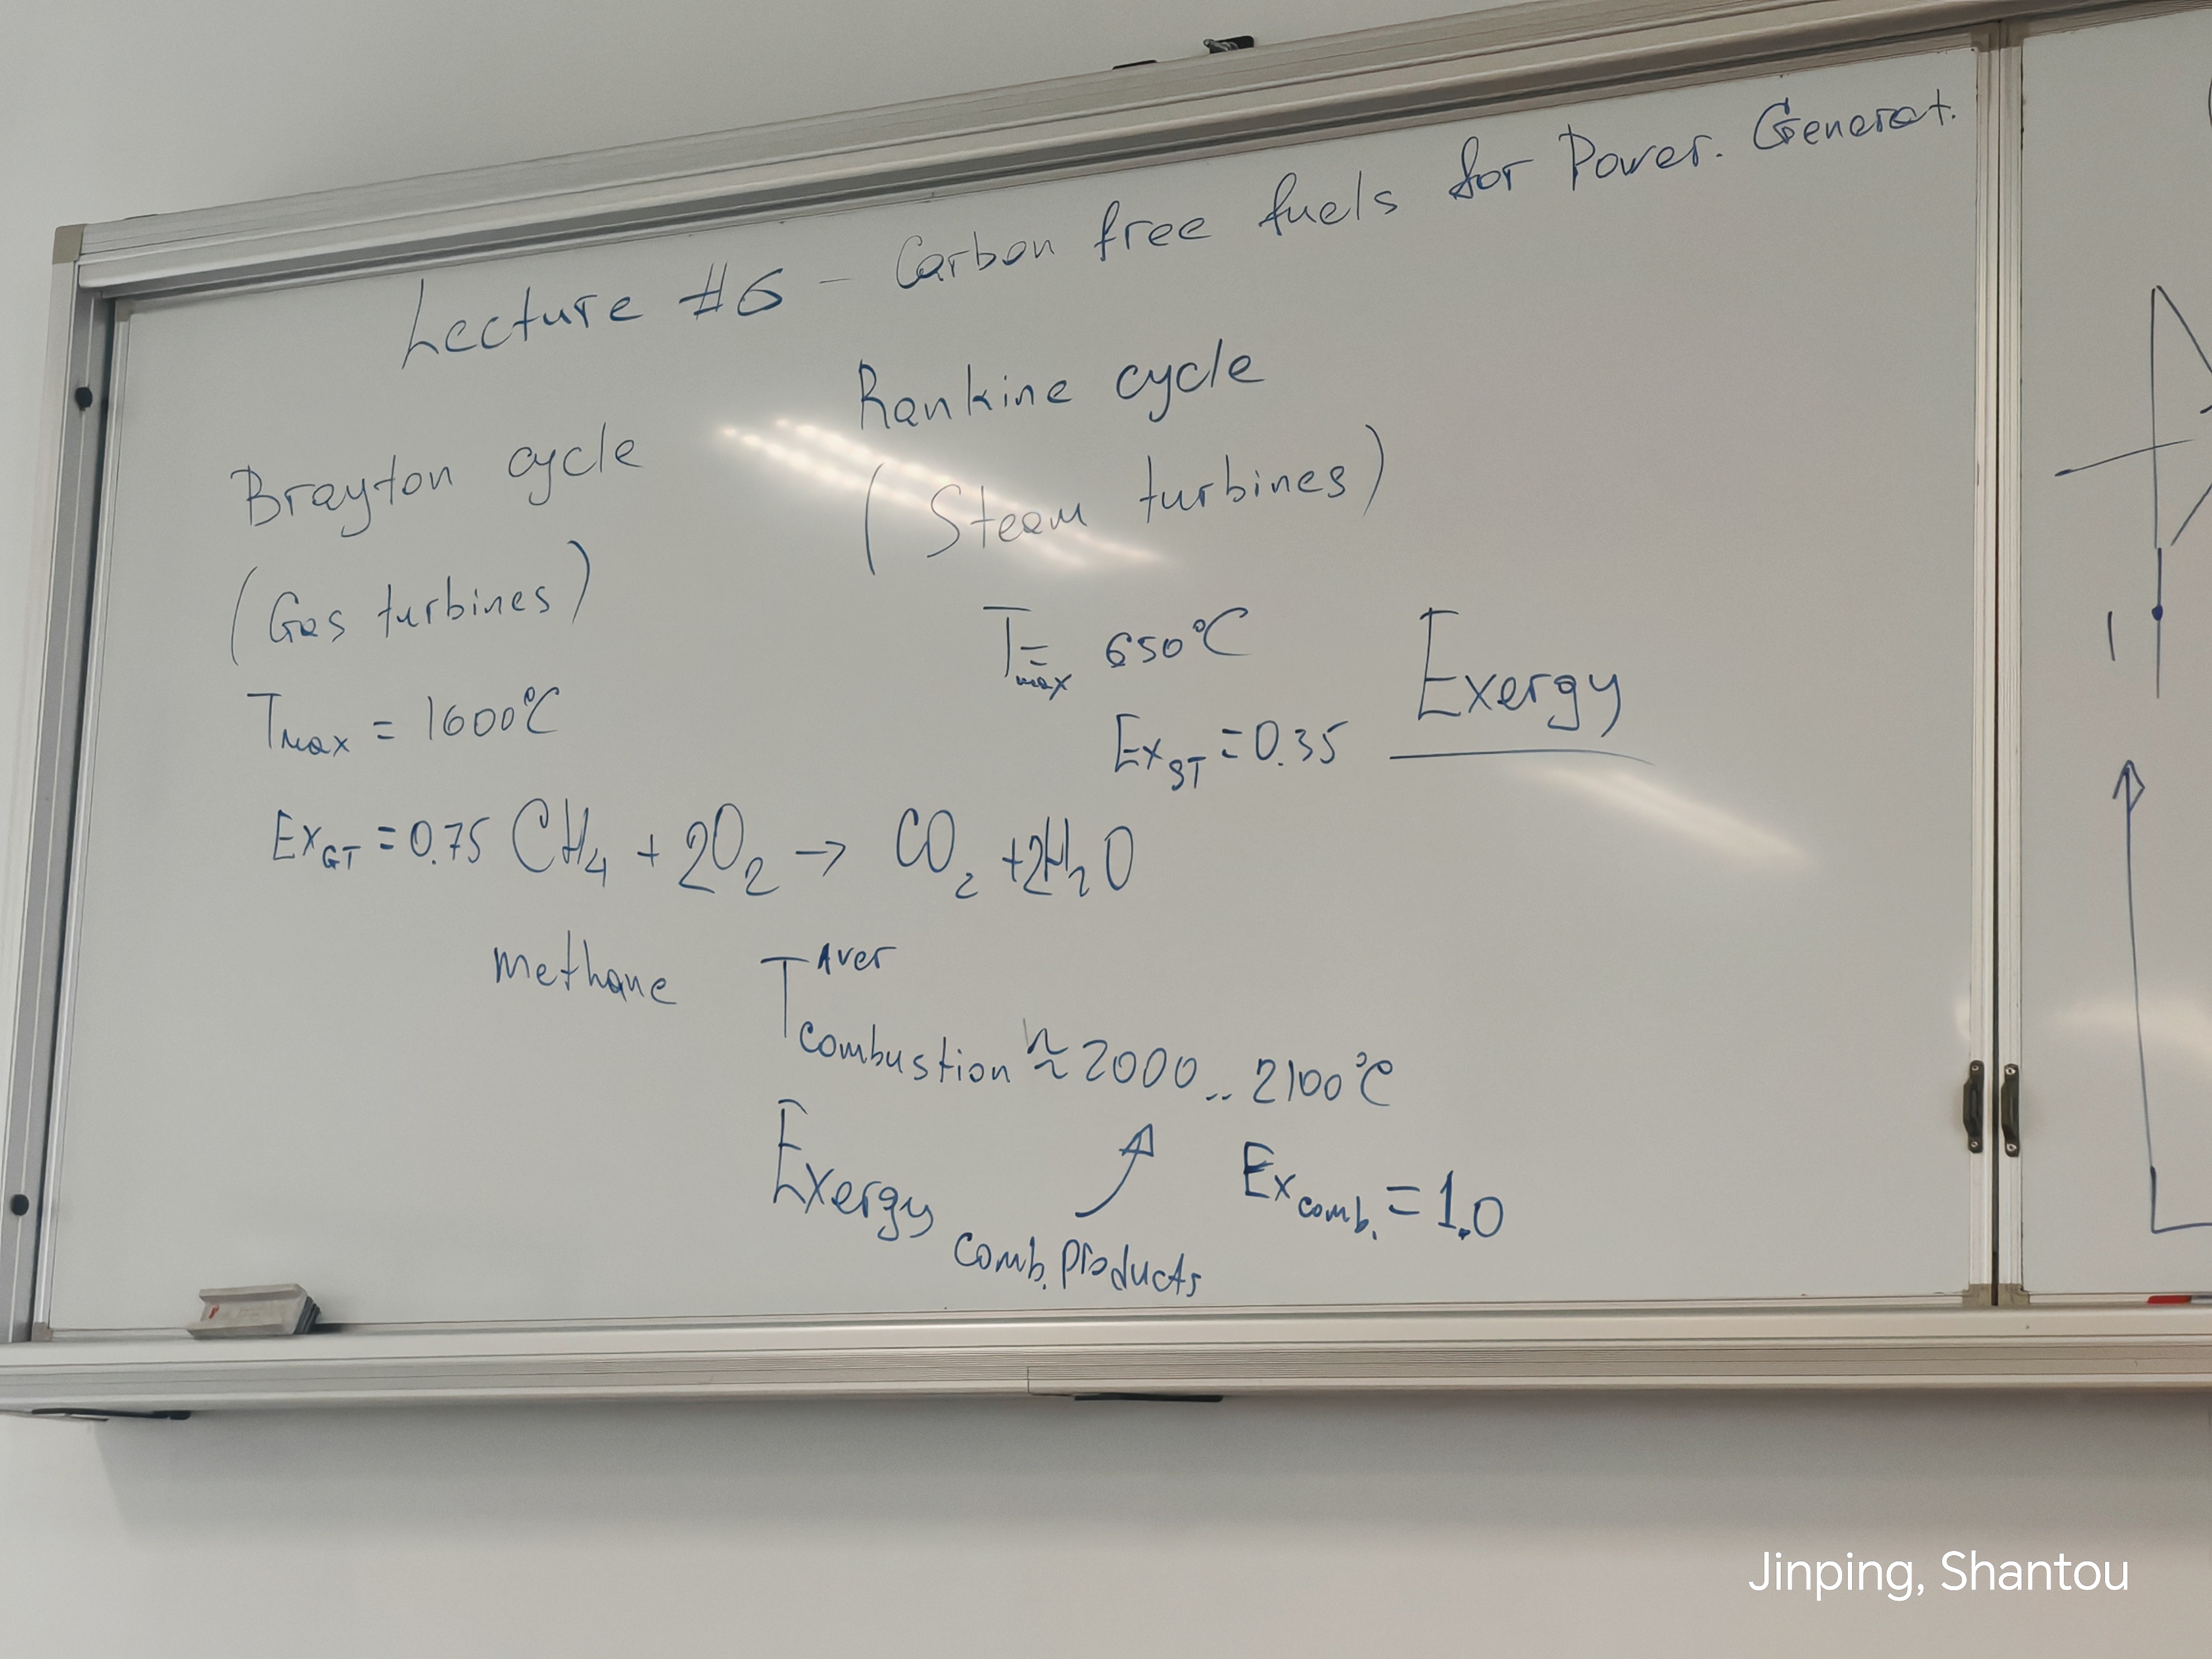 Lecture #6 – Carbon free fuels for Power. Generat.
Brayton cycle
(Gas turbines)
Tmax = 1600°C
ExGT = 0.75
Rankine cycle
(Steam turbines)
Tmax = 650°C
ExST = 0.35
Exergy
CH4 + 2O2 → CO2 + 2H2O
methane
T Aver combustion ≈ 2000.. 2100°C
Exergy comb. products
Ex comb. = 1.0
1
Jinping, Shantou